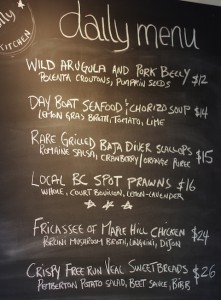 KITCHEN
daily menu
WILD ARUGULA AND PORK BELLY $12
POLENTA CROUTONS, PUMPKIN SEEDS
DAY BOAT SEAFOOD & CHORIZO SOUP $14
LEMON GRASS BROTH, TOMATO, LIME
RARE GRILLED BAJA DIVER SCALLOPS $15
ROMAINE SALSA, CRANBERRY/ORANGE PUREE
LOCAL BC SPOT PRAWNS $16
WHOLE, COURT BOUILLON, LEMON-LAVENDER
FRICASSEE OF MAPLE HILL CHICKEN $24
PORCINI MUSHROOM BROTH, LINGUINI, DIJON
CRISPY FREE RUN VEAL SWEETBREADS $26
PEMBERTON POTATO SALAD, BEET SAUCE, BIBB